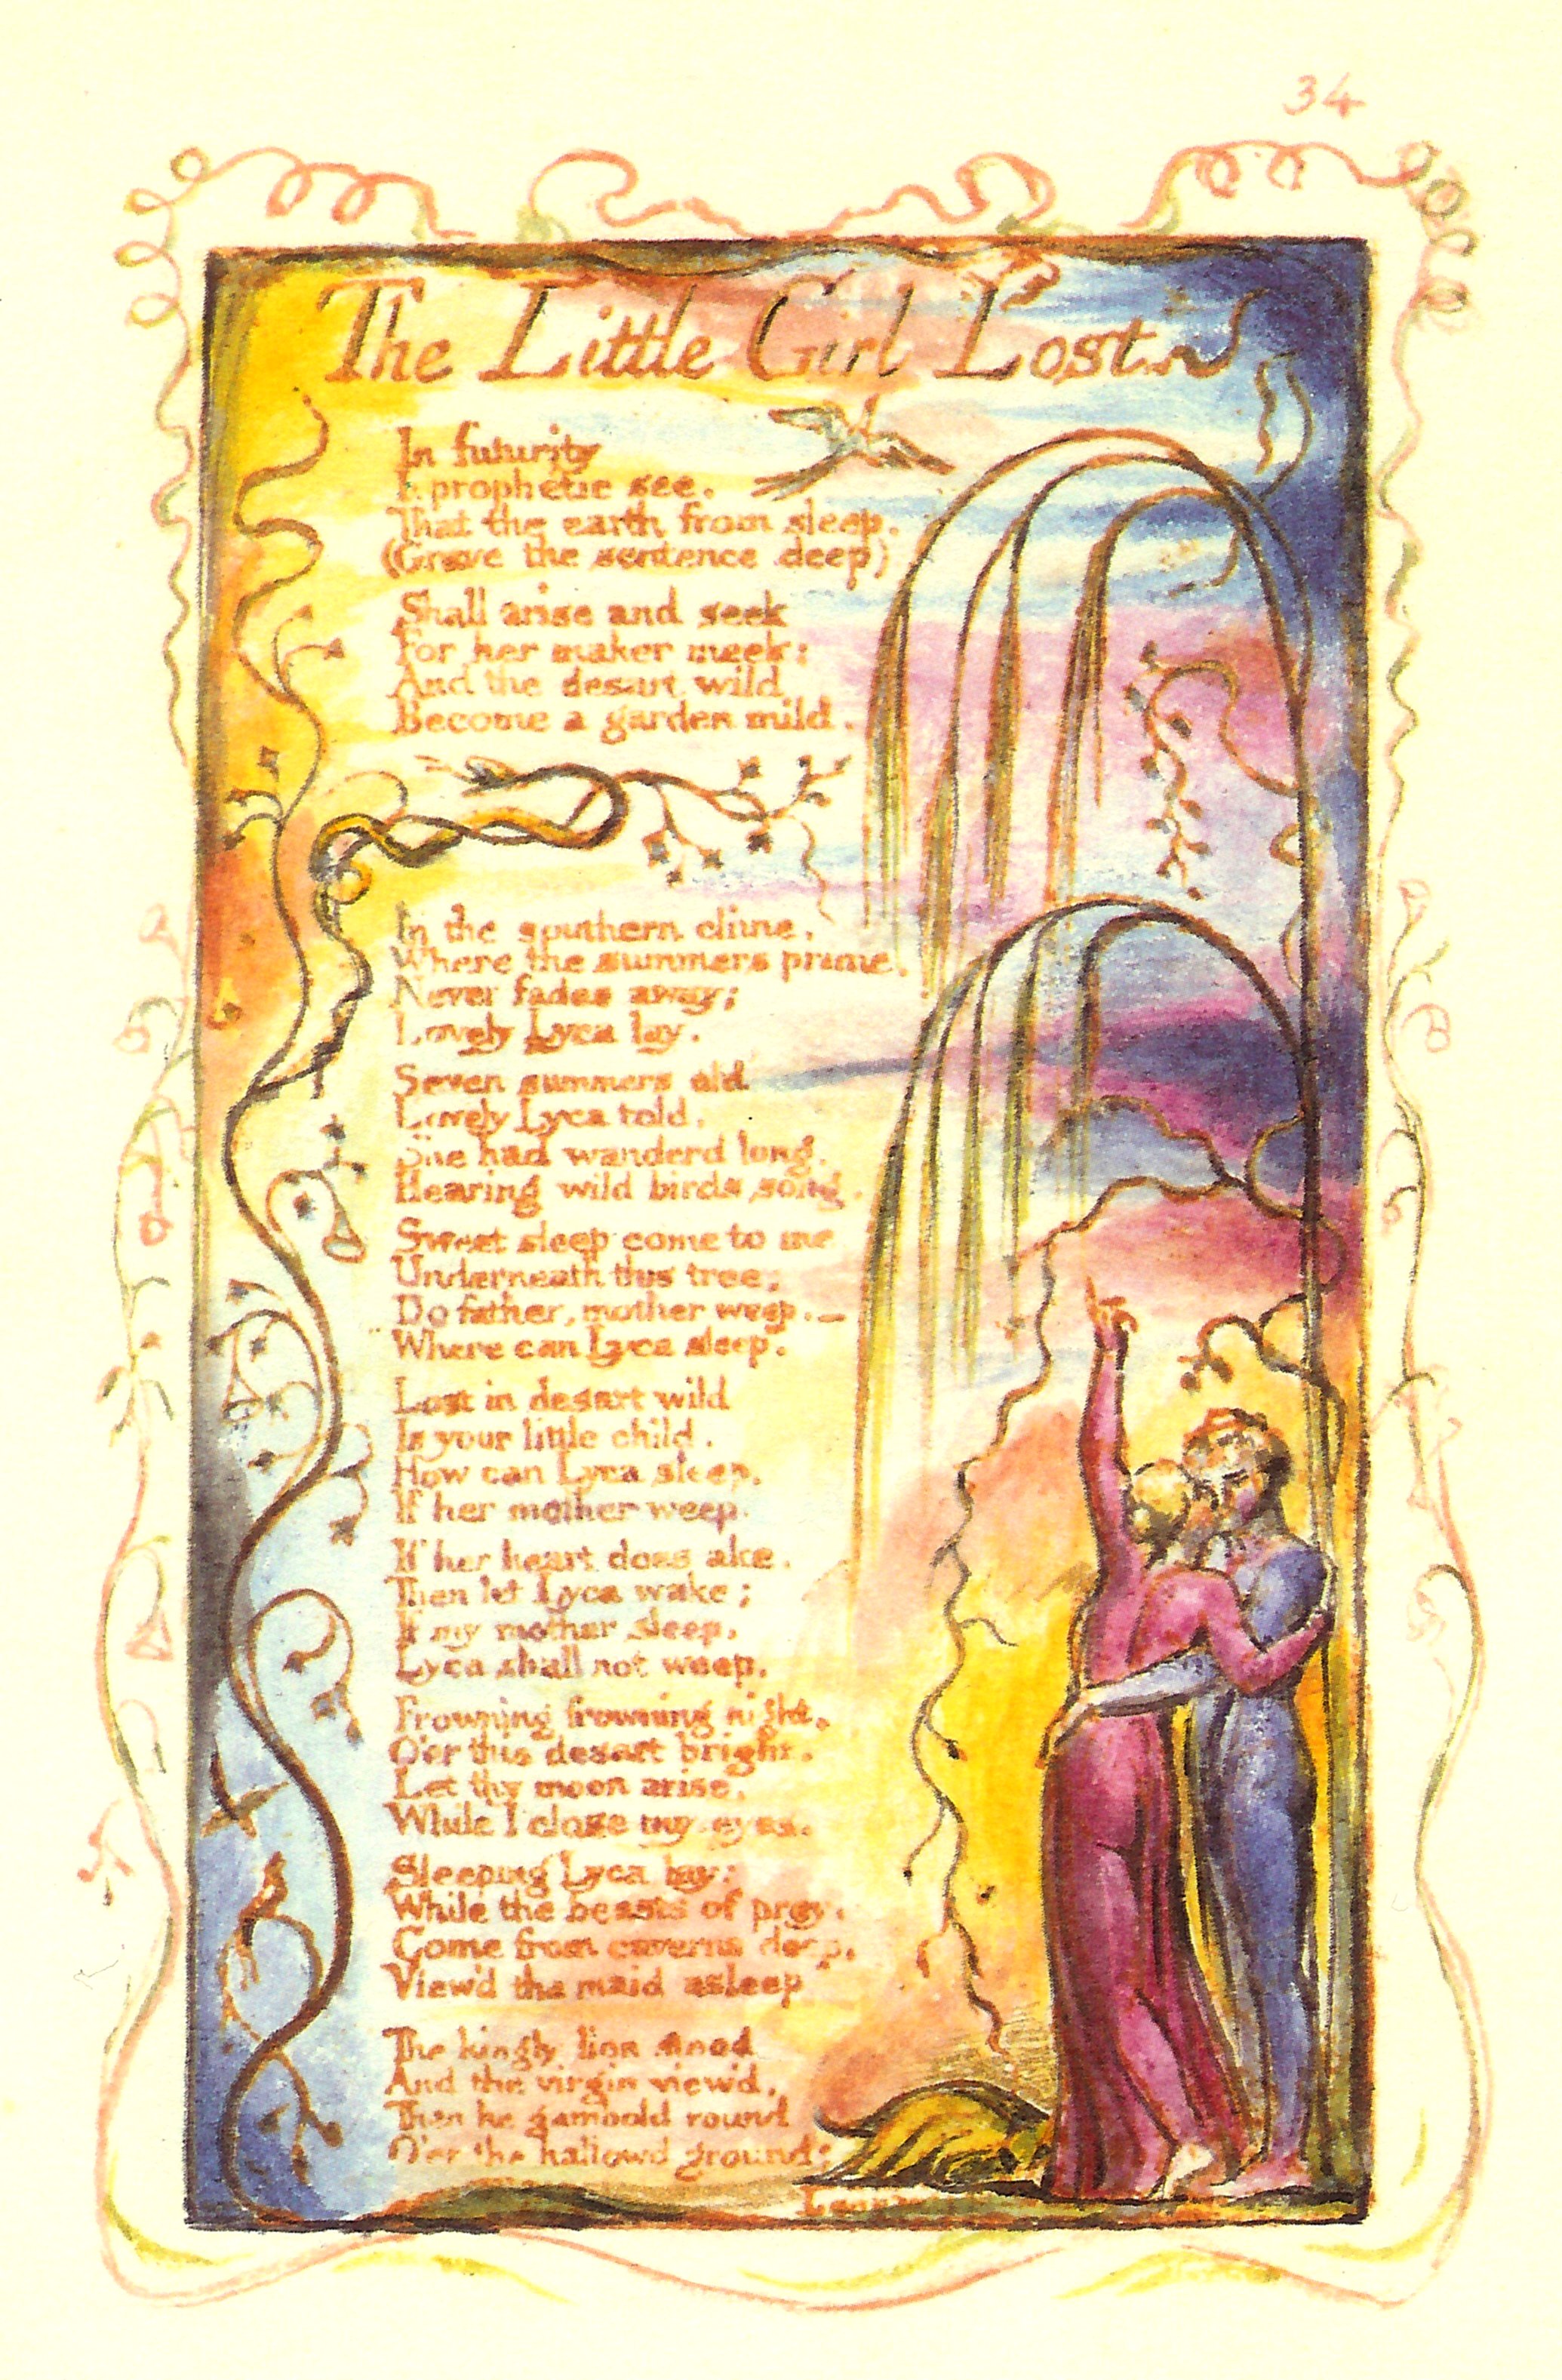 34
The Little Girl Lost
In futurity
I prophetic see.
That the earth from sleep,
(Grave the sentence deep)
Shall arise and seek
For her maker meek:
And the desart wild
Become a garden mild.
In the southern clime,
Where the summers prime,
Never fades away;
Lovely Lyca lay.
Seven summers old
Lovely Lyca told,
She had wanderd long,
Hearing wild birds song.
Sweet sleep come to me
Underneath this tree;
Do father, mother weep.—
Where can Lyca sleep.
Lost in desart wild
Is your little child.
How can Lyca sleep,
If her mother weep.
If her heart does ake,
Then let Lyca wake;
If my mother sleep,
Lyca shall not weep.
Frowning frowning night,
O'er this desart bright,
Let thy moon arise,
While I close my eyes.
Sleeping Lyca lay:
While the beasts of prey,
Come from caverns deep,
View'd the maid asleep
The kingly lion stood
And the virgin view'd,
Then he gambold round
O'er the hallowd ground: